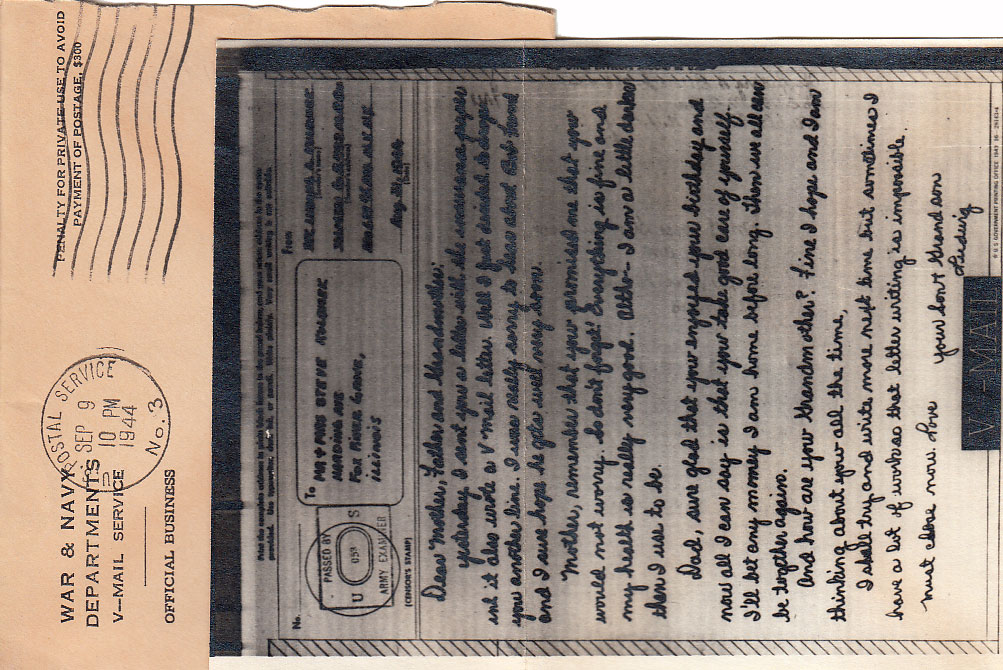 WAR & NAVY
DEPARTMENTS
V-MAIL SERVICE
OFFICIAL BUSINESS
POSTAL SERVICE
SEP 9
10 PM
1944
No. 3
PENALTY FOR PRIVATE USE TO AVOID
PAYMENT OF POSTAGE, $300
Print the complete address in plain block letters in the panel below, and your return address in the space
provided.
No.
PASSED BY
U S
ARMY EXAMINER
(CENSOR'S STAMP)
To
MR + MRS STEVE
HARDING AVE
FOX RIVER GROVE,
ILLINOIS
From
(Date)
Dear Mother, Father and Grandmother:
yesterday I sent you a letter with the insurance papers
in it also wrote a V mail letter. Well I just decided to drop
you another line. I was really sorry to hear about
and I sure hope he gets well very soon.
Mother, remember that you promised me that you
would not worry. So don't forget! Everything is fine and
my health is really very good. Altho- I am a little darker
then I use to be.
Dad, sure glad that you enjoyed your birthday and
now all I can say is that you take good care of yourself.
I'll bet any money I am home before long. Then we all can
be together again.
And how are you Grandmother? Fine I hope and I am
thinking about you all the time,
I shall try and write more next time but sometimes I
have a lot of work so that letter writing is impossible.
must close now. Love
your Son & Grandson
Ludwig
V···—MAIL
U.S. GOVERNMENT PRINTING OFFICE 1943